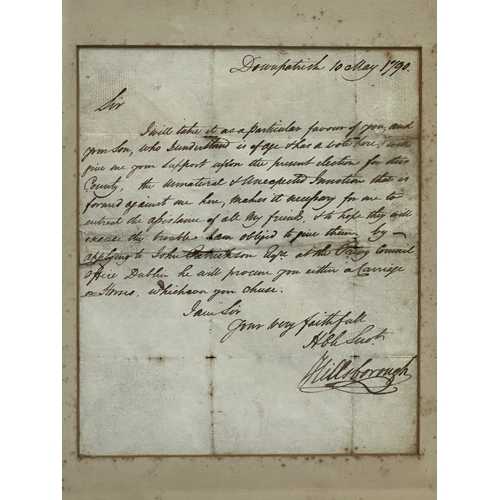 Downpatrick 10 May 1790.
Sir
I will take it as a particular favour of you, and
your Son, who I understand is of age & has a vote here, to
give me your support upon the present election for this
County, the unnatural & unexpected Junction that is
formed against me here, makes it necessary for me to
entreat the assistance of all my friends, & to hope they will
excuse the trouble I am obliged to give them, by
applying to John Esqr. at the Privy Council
office Dublin he will procure you either a Carriage
or Horses, whichever you chuse.
I am Sir
Your very faithfull
Hble Servt
Hillsborough